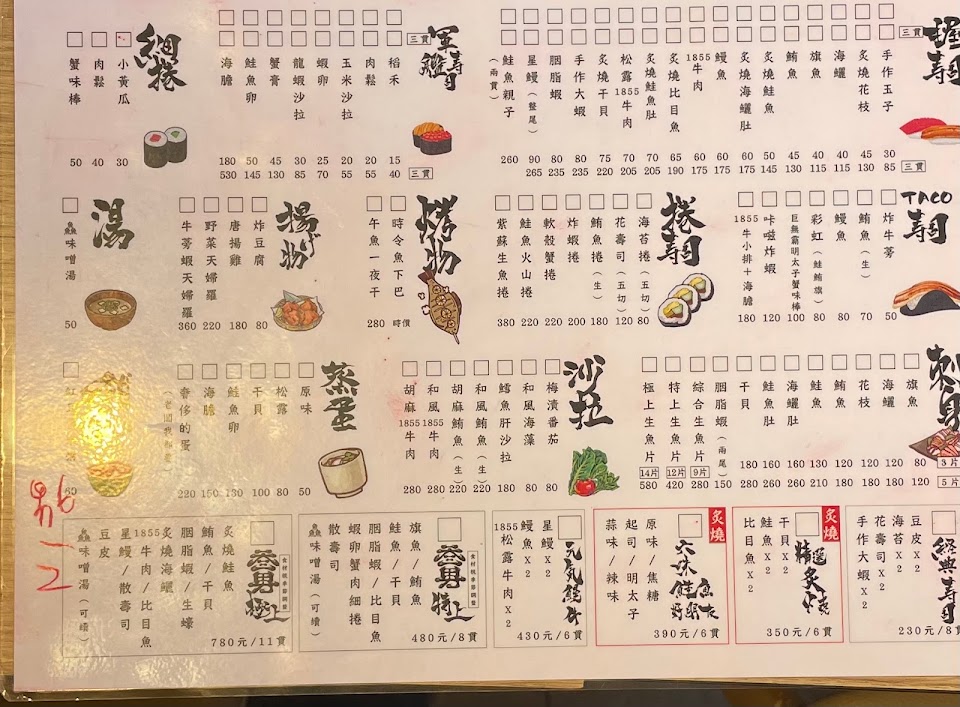 握壽司
三貫
手作玉子 30 85
炙燒花枝 45 130
海鱺 40 115
旗魚 40 115
鮪魚 45 130
炙燒鮭魚 50 145
炙燒海鱺肚 60 175
鰻魚 60 175
1855牛肉 60 175
炙燒比目魚 65 190
炙燒鮭魚肚 70 205
松露1855牛肉 70 205
炙燒干貝 75 220
手作大蝦 80 235
胭脂蝦 80 235
星鰻(整尾) 90 265
鮭魚親子(兩貫) 260
三貫
軍艦壽司
三貫
稻禾 15 40
肉鬆 20 55
玉米沙拉 20 55
蝦卵 25 70
龍蝦沙拉 30 85
蟹膏 45 130
鮭魚卵 50 145
海膽 180 530
三貫
細捲
小黃瓜 30
肉鬆 40
蟹味棒 50
TACO壽司
炸牛蒡 50
鮪魚(生) 70
鰻魚 80
彩虹(鮭鮪旗) 80
巨無霸明太子蟹味棒 100
咔嗞炸蝦 120
1855牛小排+海膽 180
捲壽司
海苔捲(五切) 80
花壽司(五切) 120
鮪魚捲(生) 180
炸蝦捲 200
軟殼蟹捲 220
鮭魚火山捲 220
紫蘇生魚捲 380
烤物
時令魚下巴 時價
午魚一夜干 280
揚げ物
炸豆腐 80
唐揚雞 180
野菜天婦羅 220
牛蒡蝦天婦羅 360
湯
鱻味噌湯 50
刺身
3片
5片
旗魚 80 120
海鱺 120 180
花枝 120 180
鮪魚 120 180
鮭魚 130 210
海鱺肚 160 260
鮭魚肚 160 260
干貝 180 280
胭脂蝦(兩尾) 150
綜合生魚片 9片 280
特上生魚片 12片 420
極上生魚片 14片 580
沙拉
梅漬番茄 80
和風海藻 80
鱈魚肝沙拉 180
和風鮪魚(生) 220
胡麻鮪魚(生) 220
和風1855牛肉 280
胡麻1855牛肉 280
蒸蛋
原味 50
松露 80
干貝 100
鮭魚卵 130
海膽 150
奢侈的蛋 220
經典壽司
豆皮x2
海苔x2
花壽司x2
手作大蝦x2
230元/8貫
炙燒
精選炙燒
干貝x2
鮭魚x2
比目魚x2
350元/6貫
炙燒
六味鮭魚
原味/焦糖
起司/明太子
蒜味/辣味
390元/6貫
元氣鰻牛
星鰻x2
鰻魚x2
1855松露牛肉x2
430元/6貫
特上
旗魚/鮪魚
鮭魚/干貝
胭脂蝦/比目魚
蝦卵蟹肉細捲
散壽司
鱻味噌湯(可續)
480元/8貫
極上
炙燒鮭魚
鮪魚/干貝
胭脂蝦/生蠔
炙燒海鱺
1855牛肉/比目魚
星鰻/散壽司
豆皮
鱻味噌湯(可續)
780元/11貫